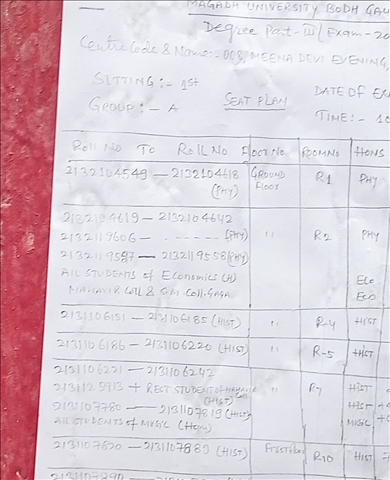 MAGADH UNIVERSITY BODH GA
Degree Part-III Exam-20
Centre Code & Name:- 008, MEENA DEVI EVENING,
SITTING:- 1st
DATE OF EX
GROUP:- A SEAT PLAN
TIME:- 10
ROLL NO TO ROLL NO FLOOR NO ROOM NO HONS
2132104549 - 2132104618 GROUND R1 PHY
(PHY) FLOOR
2132104619 - 2132104642
2132119606 - - - - - - - (PHY) " R2 PHY
2132119557 - 2132119558 (PHY)
All STUDENTS of Economics (H) Eco
& Coll. GAYA Eco
2131106151 - 2131106185 (HIST) " R-4 HIST
2131106186 - 2131106220 (HIST) " R-5 HIST
2131106221 - 2131106242
2131125913 + REST STUDENT of " R7 HIST
(HIST)
2131107780 - 2131107819 (HIST) HIST
All STUDENTS of MUSIC (Hons) MUSIC
2131107820 - 2131107889 (HIST) First floor R10 HIST 7